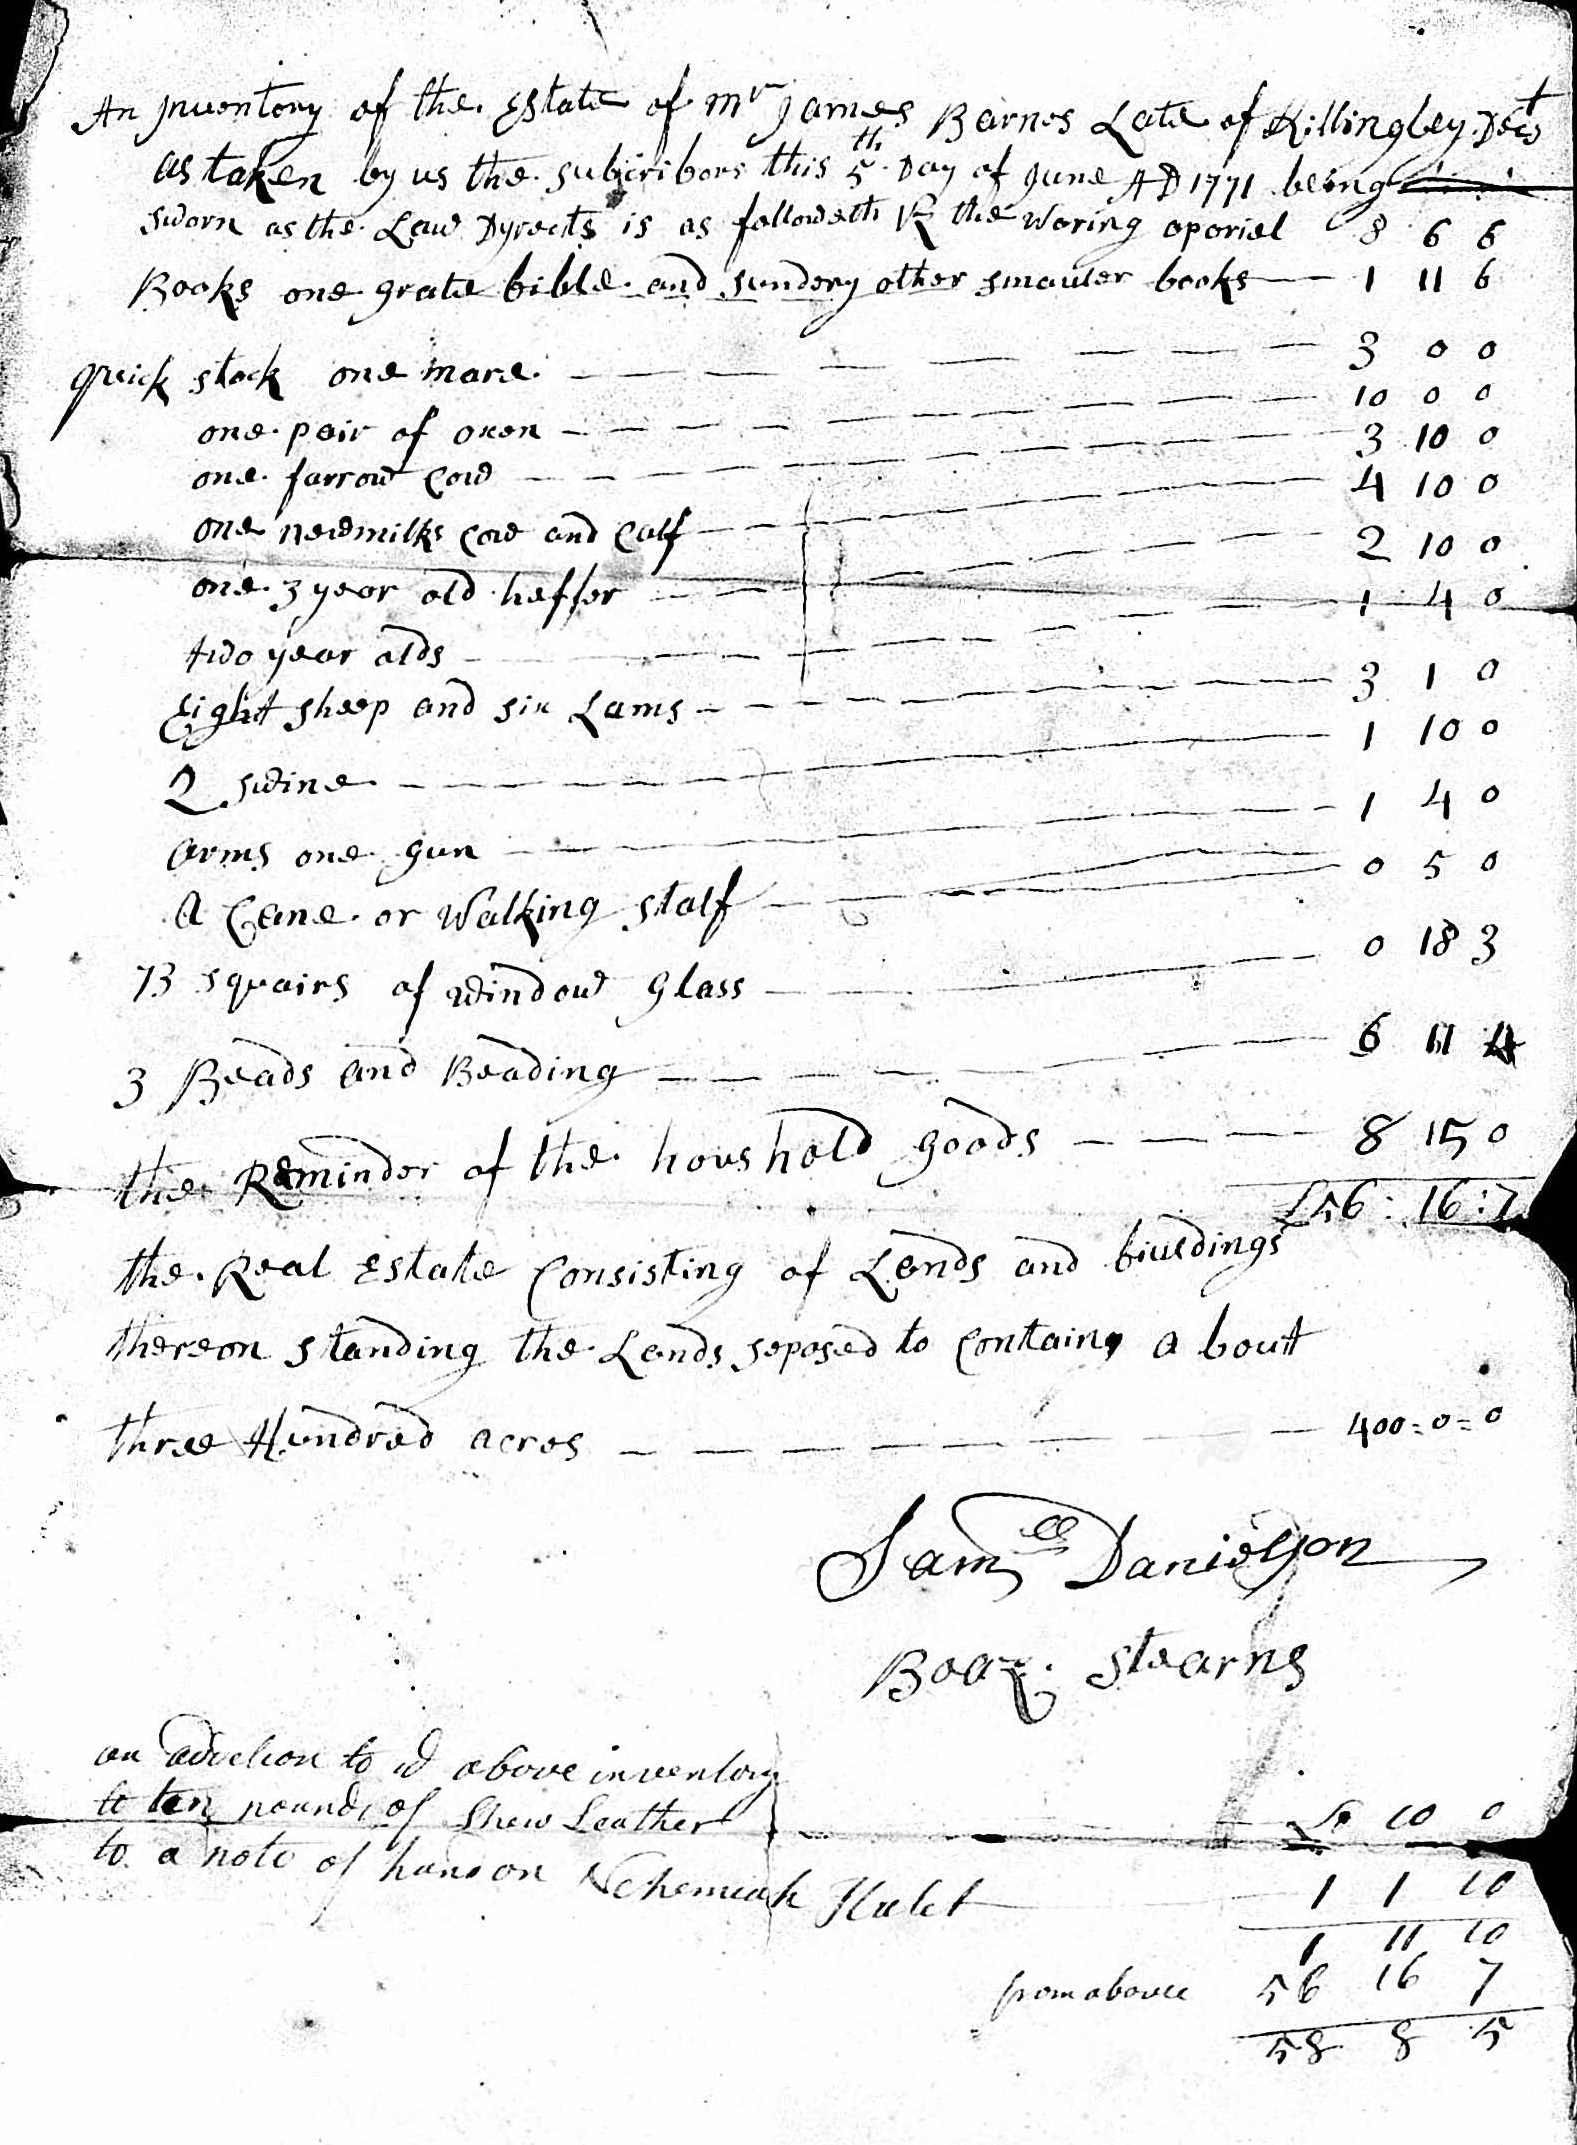 An Inventory of the Estate of mr James Barnes Late of Killingley Decst
as taken by us the subscribors this 5th Day of June AD 1771 being
sworn as the Law Dyrects is as followeth the Waring aporiel 8 6 6
Books one grate bible and sundery other smauler books 1 11 6
quick stock one mare 3 0 0
one pair of oxen 10 0 0
one farrow Cow 3 10 0
one newmilks Cow and Calf 4 10 0
one 3 year old heffer 2 10 0
two year olds 1 4 0
Eight sheep and six Lams 3 1 0
2 swine 1 10 0
Arms one gun 1 4 0
A Cane or Walking stalf 0 5 0
73 squairs of window Glass 0 18 3
3 Beads and Beading 6 11 4
the Reminder of the houshold goods 8 15 0
£56 : 16 : 7
the Real Estate Consisting of Lands and biuldings
thereon standing the Lands seposed to Contain a bout
three Hundred acres 400=0=0
Samll Danielson
Boaz Stearns
an addetion to sd above inventory
to ten pounds of Shew Leather 10 0
to a note of hand on Nehemiah Hulet 1 1 10
1 11 10
from above 56 16 7
58 8 5